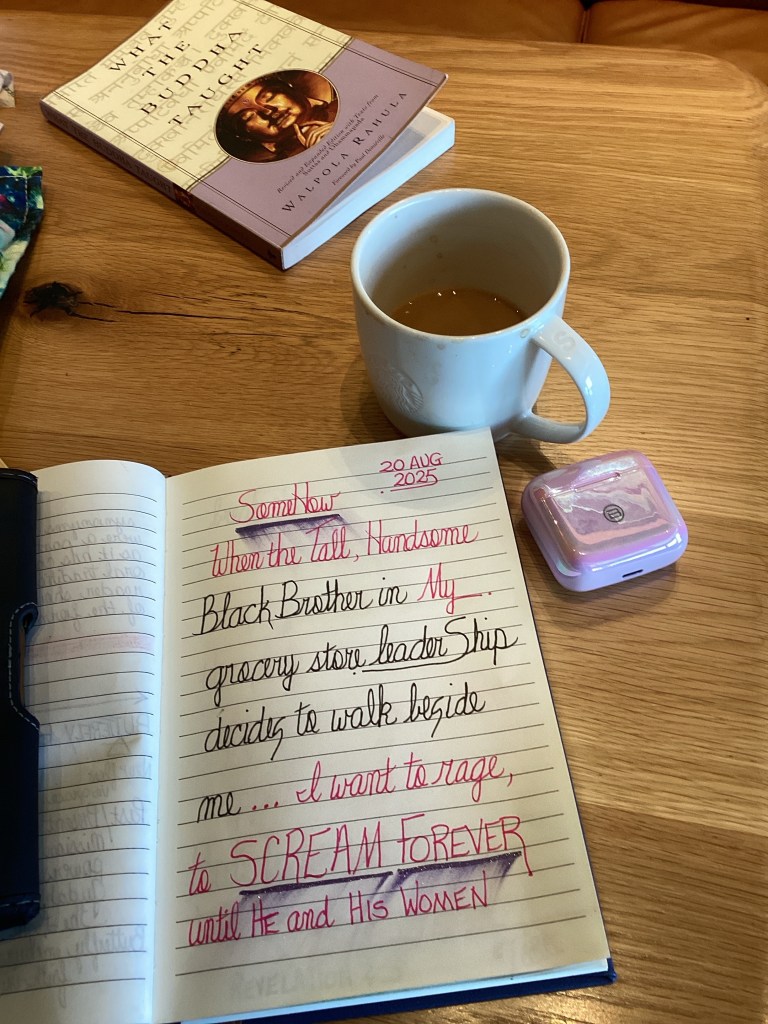 WHAT
THE
BUDDHA
TAUGHT
Revised and Expanded Edition with Texts from
Suttas and Dhammapada
WALPOLA RAHULA
Foreword by Paul Demiéville
20 AUG
2025
SomeHow
When the Tall, Handsome
Black Brother in My
grocery store leaderShip
decides to walk beside
me... I want to rage,
to SCREAM FOREVER
until HE and HIS WOMEN